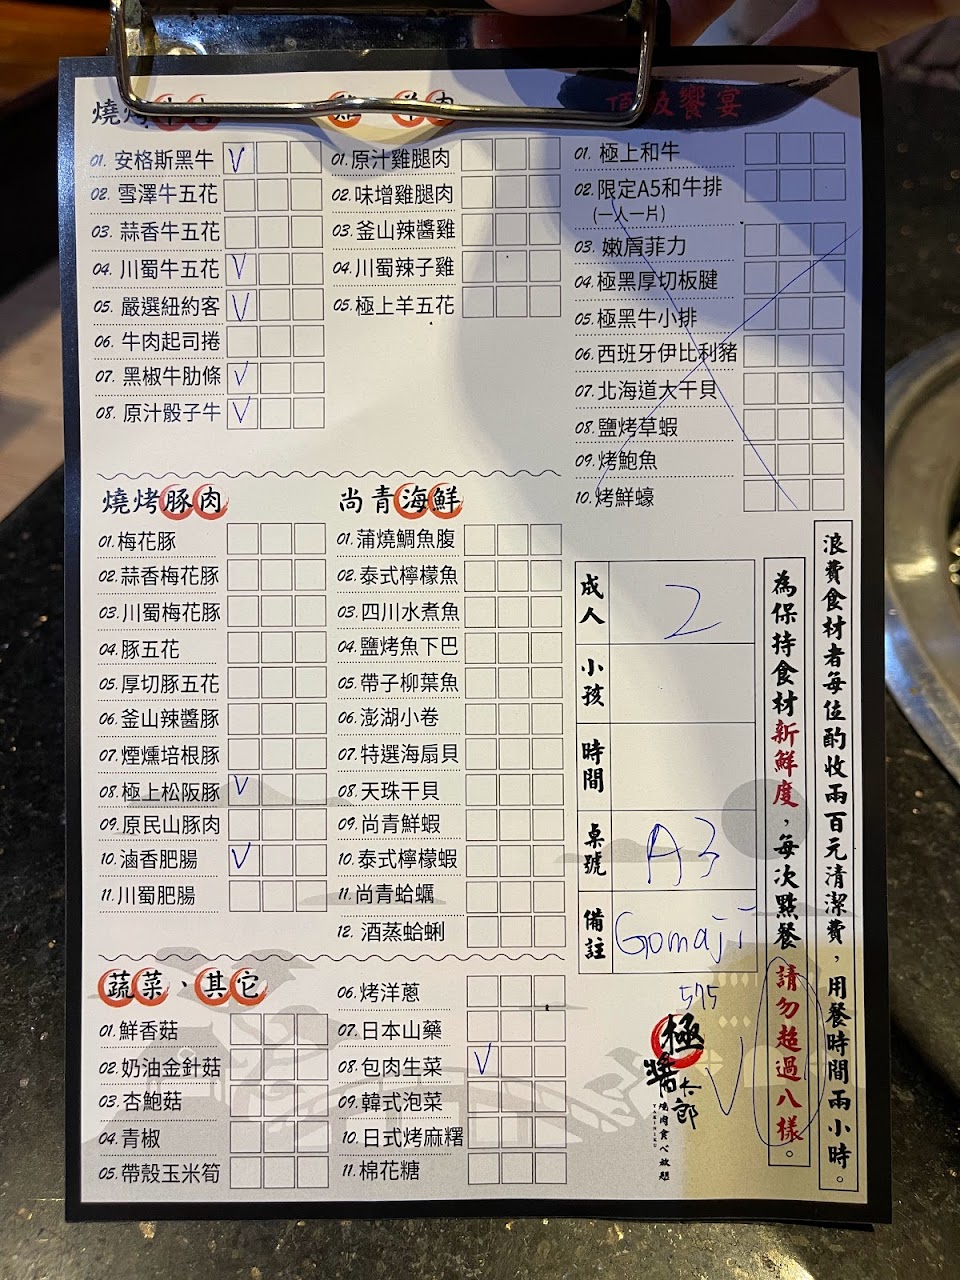 燒烤牛肉
01. 安格斯黑牛 V
02. 雪澤牛五花
03. 蒜香牛五花
04. 川蜀牛五花 V
05. 嚴選紐約客 V
06. 牛肉起司捲
07. 黑椒牛肋條 V
08. 原汁骰子牛 V
雞 羊肉
01. 原汁雞腿肉
02. 味增雞腿肉
03. 釜山辣醬雞
04. 川蜀辣子雞
05. 極上羊五花
頂級饗宴
01. 極上和牛
02. 限定A5和牛排
(一人一片)
03. 嫩肩菲力
04. 極黑厚切板腱
05. 極黑牛小排
06. 西班牙伊比利豬
07. 北海道大干貝
08. 鹽烤草蝦
09. 烤鮑魚
10. 烤鮮蠔
燒烤豚肉
01. 梅花豚
02. 蒜香梅花豚
03. 川蜀梅花豚
04. 豚五花
05. 厚切豚五花
06. 釜山辣醬豚
07. 煙燻培根豚
08. 極上松阪豚 V
09. 原民山豚肉
10. 滷香肥腸 V
11. 川蜀肥腸
尚青海鮮
01. 蒲燒鯛魚腹
02. 泰式檸檬魚
03. 四川水煮魚
04. 鹽烤魚下巴
05. 帶子柳葉魚
06. 澎湖小卷
07. 特選海扇貝
08. 天珠干貝
09. 尚青鮮蝦
10. 泰式檸檬蝦
11. 尚青蛤蠣
12. 酒蒸蛤蜊
蔬菜、其它
01. 鮮香菇
02. 奶油金針菇
03. 杏鮑菇
04. 青椒
05. 帶殼玉米筍
06. 烤洋蔥
07. 日本山藥
08. 包肉生菜 V
09. 韓式泡菜
10. 日式烤麻糬
11. 棉花糖
成人 2
小孩
時間
桌號 A3
備註 Gomaji
575
為保持食材新鮮度，每次點餐請勿超過八樣。
浪費食材者每位酌收兩百元清潔費，用餐時間兩小時。
極醬太郎
燒肉食べ放題
YAKINIKU
V